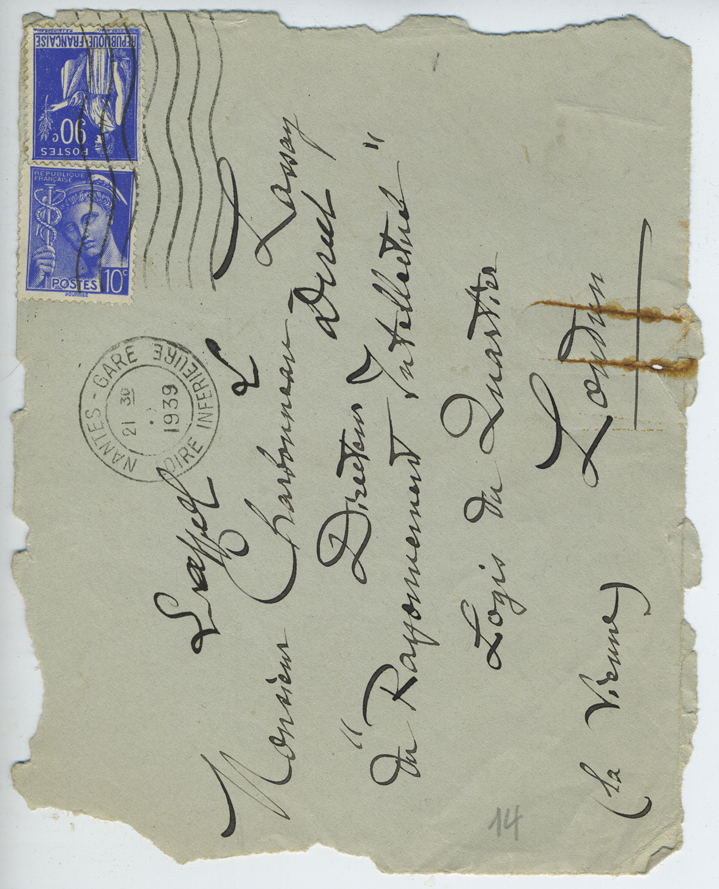 RÉPUBLIQUE FRANÇAISE
90c
POSTES
RÉPUBLIQUE
FRANÇAISE
POSTES 10c
NANTES - GARE
21 30
1939
LOIRE INFERIEURE
Monsieur Charbonneau Lassay
Directeur
du "Rayonnement Intellectuel"
Logis du Quartier
Loudun
(la Vienne)
14